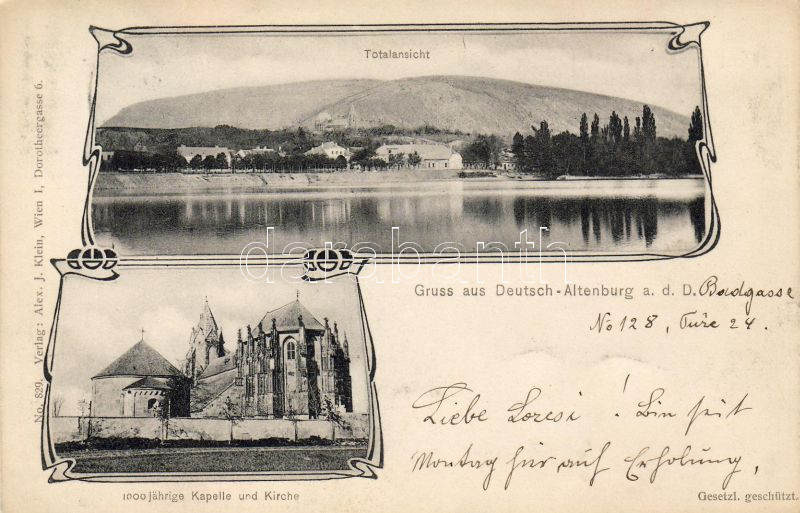 Totalansicht
No. 829. Verlag: Alex. J. Klein, Wien I, Dorotheergasse 6.
darabanth
Gruss aus Deutsch-Altenburg a. d. D. Badgasse
No 128, Türe 24.
Liebe Loresi! Bin seit
Montag hier auf Erholung,
1000jährige Kapelle und Kirche
Gesetzl. geschützt.